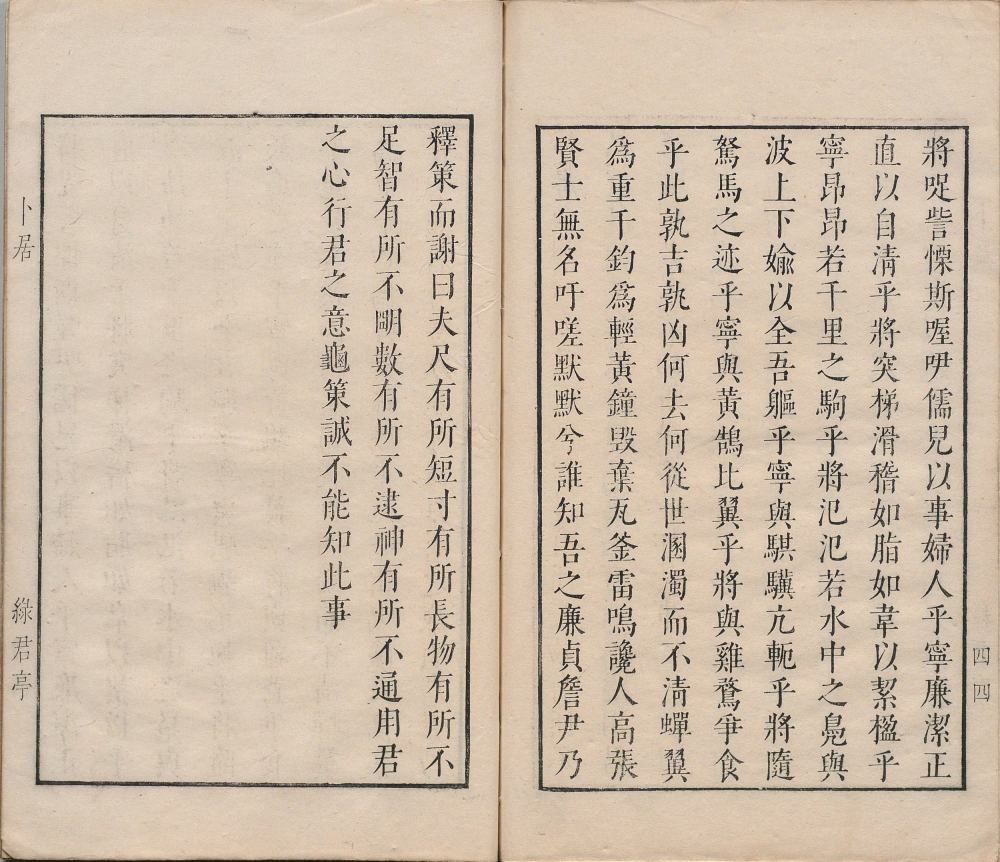 將哫訾慄斯喔咿儒兒以事婦人乎寧廉潔正
直以自清乎將突梯滑稽如脂如韋以絜楹乎
寧昂昂若千里之駒乎將氾氾若水中之鳧與
波上下媮以全吾軀乎寧與騏驥亢軛乎將隨
駑馬之迹乎寧與黃鵠比翼乎將與雞鶩爭食
乎此孰吉孰凶何去何從世溷濁而不清蟬翼
爲重千鈞爲輕黃鐘毀棄瓦釜雷鳴讒人高張
賢士無名吁嗟默默兮誰知吾之廉貞詹尹乃
四四
釋策而謝曰夫尺有所短寸有所長物有所不
足智有所不明數有所不逮神有所不通用君
之心行君之意龜策誠不能知此事
卜居
綠君亭